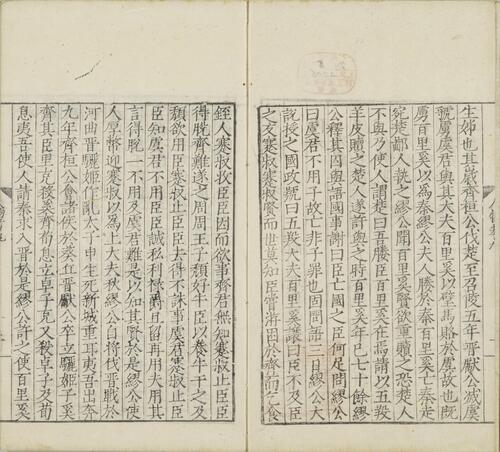 生姊也其歲齊桓公伐楚至召陵五年晉獻公滅虞
虢虜虞君與其大夫百里奚以璧馬賂於虞故也既
虜百里奚以為秦繆公夫人媵於秦百里奚亡秦走
宛楚鄙人執之繆公聞百里奚賢欲重贖之恐楚人
不與乃使人謂楚曰吾媵臣百里奚在焉請以五羖
羊皮贖之楚人遂許與之當是時百里奚年已七十餘繆
公釋其囚與語國事謝曰臣亡國之臣何足問繆公
曰虞君不用子故亡非子罪也固問語三日繆公大
說授之國政號曰五羖大夫百里奚讓曰臣不及臣
之友蹇叔蹇叔賢而世莫知臣常游困於齊而乞食
銍人蹇叔收臣臣因而欲事齊君無知蹇叔止臣臣
得脫齊難遂之周周王子頹好牛臣以養牛干之及
頹欲用臣蹇叔止臣臣去得不誅事虞君蹇叔止臣
臣知虞君不用臣臣誠私利祿爵且留再用其
言得脫一不用及虞君難是以知其賢於是繆公使
人厚幣迎蹇叔以為上大夫秋繆公自將伐晉戰於
河曲晉驪姬作亂太子申生死新城重耳夷吾出奔
九年齊桓公會諸侯於葵丘晉獻公卒立驪姬子奚
齊其臣里克殺奚齊荀息立卓子克又殺卓子及荀
息夷吾使人請秦求入晉於是繆公許之使百里奚